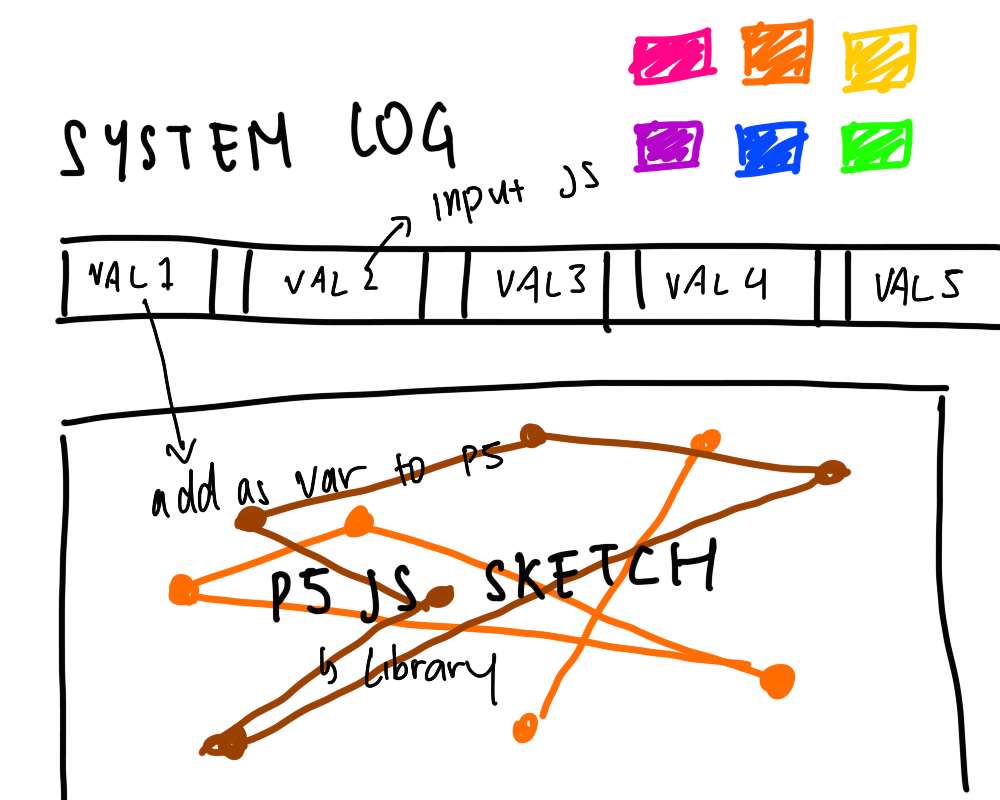 SYSTEM LOG
input JS
VAL1 VAL2 VAL3 VAL4 VAL5
add as var to P5
P5 JS SKETCH
↳ Library